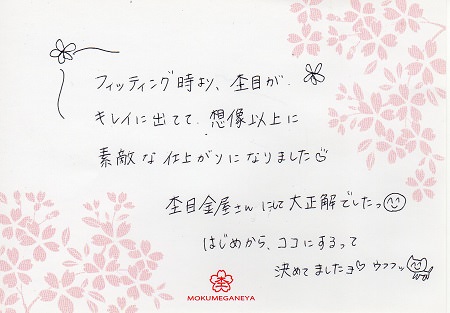 フィッティング時より、杢目が
キレイに出てて、想像以上に
素敵な仕上がりになりました♡
杢目金屋さんにして大正解でしたっ☺
はじめから、ココにするって
決めてましたヨ♡ ウフフッ
MOKUMEGANEYA